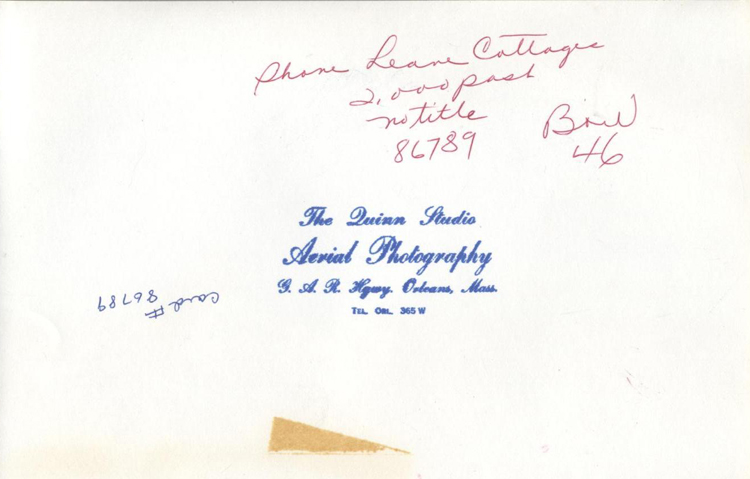 Shore Leave Cottages
2,000 post
no title
86789
46
The Quinn Studio
Aerial Photography
G. A. R. Hgwy. Orleans, Mass.
Tel. Orl. 365 W
Card # 86789